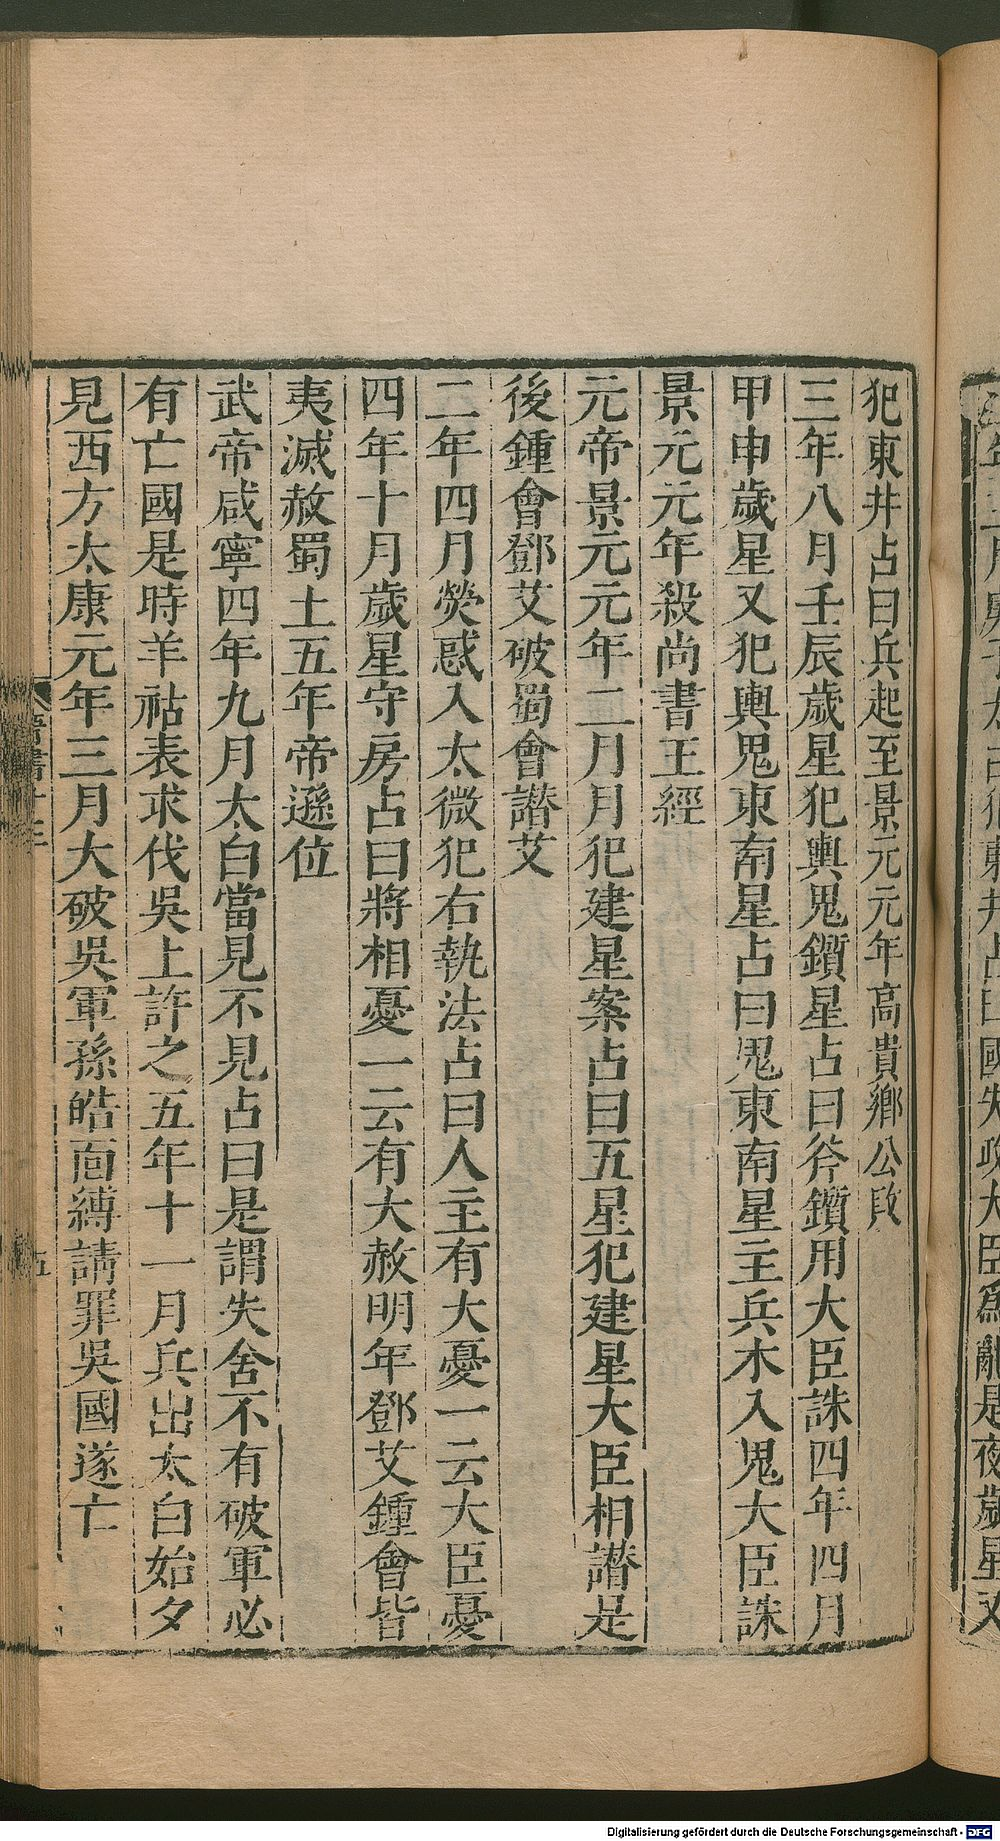 犯東井占曰兵起至景元元年高貴鄉公敗
三年八月壬辰歲星犯輿鬼鑕星占曰斧鑕用大臣誅四年四月
甲申歲星又犯輿鬼東南星占曰鬼東南星主兵木入鬼大臣誅
景元元年殺尚書王經
元帝景元元年二月月犯建星案占曰五星犯建星大臣相譖是
後鍾會鄧艾破蜀會譖艾
二年四月熒惑入太微犯右執法占曰人主有大憂一云大臣憂
四年十月歲星守房占曰將相憂一云有大赦明年鄧艾鍾會皆
夷滅赦蜀土五年帝遜位
武帝咸寧四年九月太白當見不見占曰是謂失舍不有破軍必
有亡國是時羊祜表求伐吳上許之五年十一月兵出太白始夕
見西方太康元年三月大破吳軍孫皓面縛請罪吳國遂亡
五
Digitalisierung gefördert durch die Deutsche Forschungsgemeinschaft - DFG